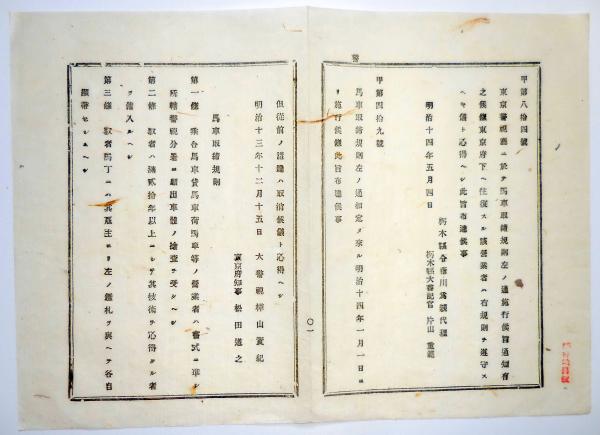 甲第八拾四號
東京警視廳ニ於テ馬車取締規則左ノ通施行候旨通知有
之候條東京府下ヘ往復スル該營業者ハ右規則ヲ遵守ス
ヘキ儀ト心得ヘシ此旨布達候事
明治十四年五月四日
栃木縣令 川 代理
栃木縣大書記官 片山重範
甲第四拾九號
馬車取締規則左ノ通相定メ來ル明治十四年一月一日ヨ
リ施行候條此旨布達候事
〇一
但從前ノ達ハ取消候儀ト心得ヘシ
明治十三年十二月十五日
大警視 樺山資紀
東京府知事 松田道之
馬車取締規則
第一條 乘合馬車貸馬車荷馬車等ノ營業者ハ書式ニ準シ
所轄警視分署ニ願出車體ノ檢査ヲ受クヘシ
第二條 馭者ハ滿貳拾年以上ニシテ其技術ヲ心得タル者
ヲ雇入ルヘシ
第三條 馭者馬丁ニハ其雇主ヨリ左ノ鑑札ヲ與ヘテ各自
携帶セシムヘシ